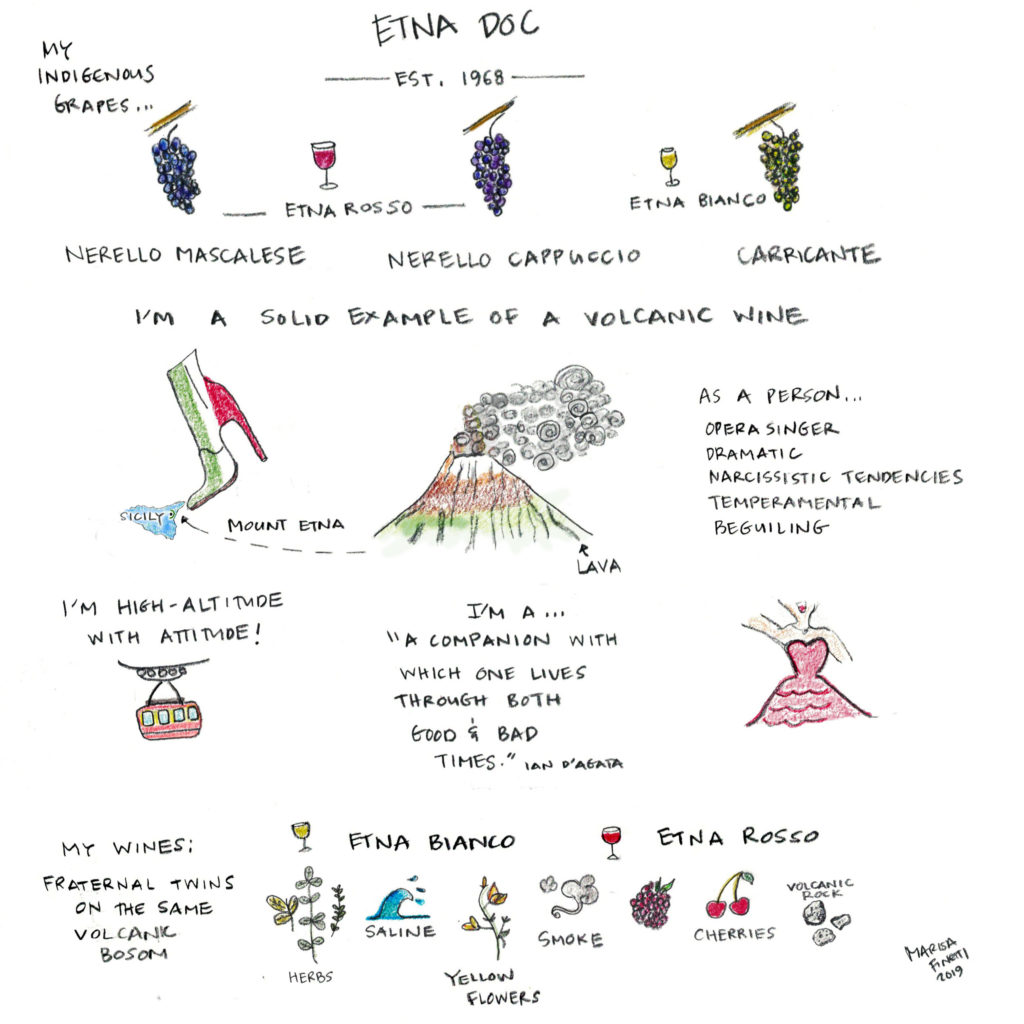 ETNA DOC
EST. 1968
MY
INDIGENOUS
GRAPES...
ETNA ROSSO
ETNA BIANCO
NERELLO MASCALESE
NERELLO CAPPUCCIO
CARRICANTE
I'M A SOLID EXAMPLE OF A VOLCANIC WINE
SICILY
MOUNT ETNA
LAVA
AS A PERSON...
OPERA SINGER
DRAMATIC
NARCISSISTIC TENDENCIES
TEMPERAMENTAL
BEGUILING
I'M HIGH-ALTITUDE
WITH ATTITUDE!
I'M A...
"A COMPANION WITH
WHICH ONE LIVES
THROUGH BOTH
GOOD & BAD
TIMES." IAN D'AGATA
MY WINES:
FRATERNAL TWINS
ON THE SAME
VOLCANIC
BOSOM
ETNA BIANCO
HERBS
SALINE
YELLOW
FLOWERS
ETNA ROSSO
SMOKE
CHERRIES
VOLCANIC
ROCK
MARISA
FINETTI
2019